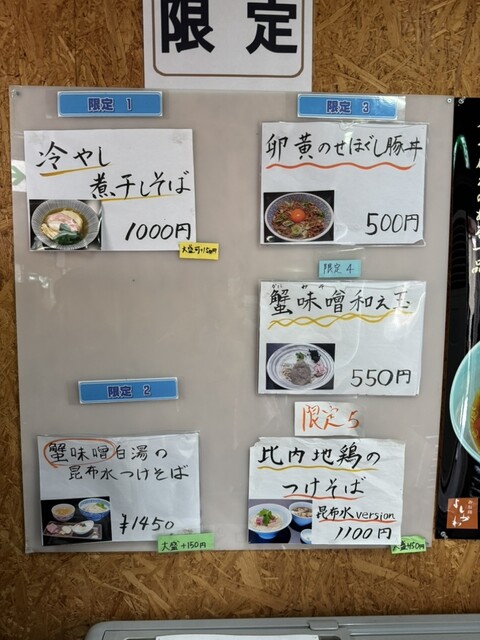 限定
限定 1
冷やし
煮干しそば
1000円
限定 2
蟹味噌白湯の
昆布水つけそば
¥1450
大盛+150円
限定 3
卵黄のせほぐし豚丼
500円
限定 4
かに みそ
蟹味噌和え玉
550円
限定5
比内地鶏の
つけそば
昆布水version
1100円